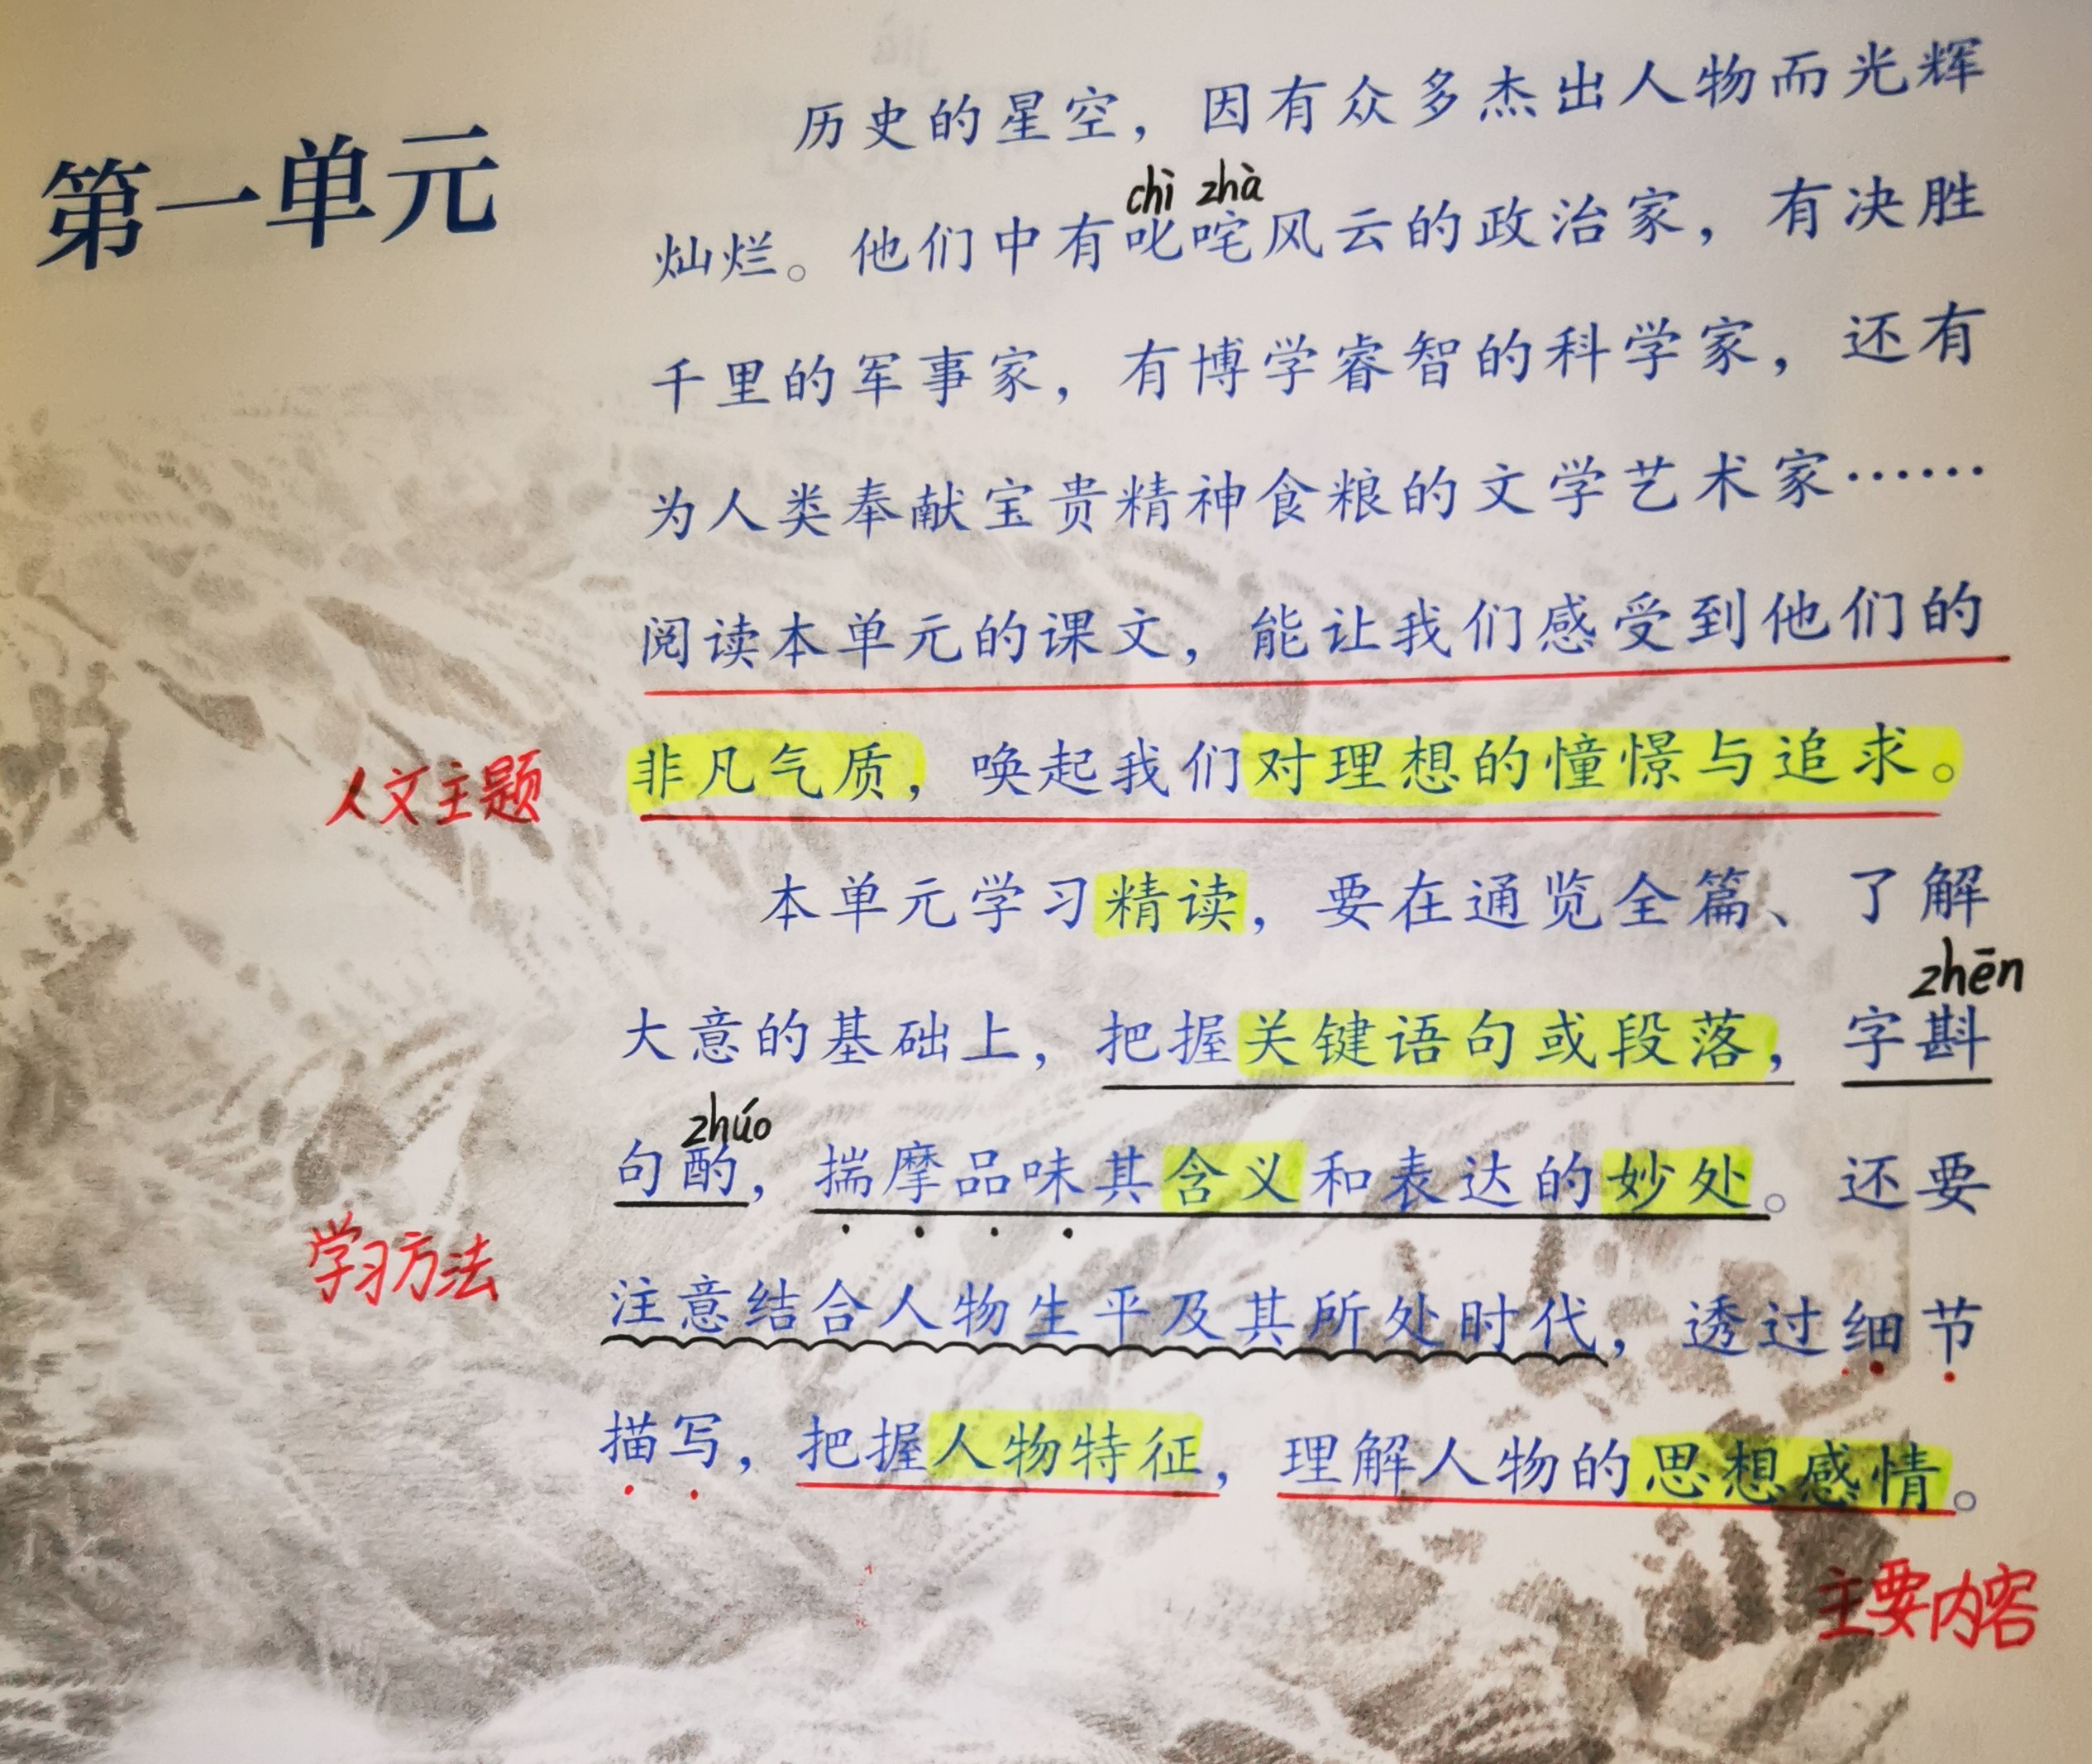 第一单元
历史的星空，因有众多杰出人物而光辉
chì zhà
灿烂。他们中有叱咤风云的政治家，有决胜
千里的军事家，有博学睿智的科学家，还有
为人类奉献宝贵精神食粮的文学艺术家……
阅读本单元的课文，能让我们感受到他们的
人文主题
非凡气质，唤起我们对理想的憧憬与追求。
本单元学习精读，要在通览全篇、了解
zhēn
大意的基础上，把握关键语句或段落，字斟
zhúo
句酌，揣摩品味其含义和表达的妙处。还要
学习方法
注意结合人物生平及其所处时代，透过细节
描写，把握人物特征，理解人物的思想感情。
主要内容